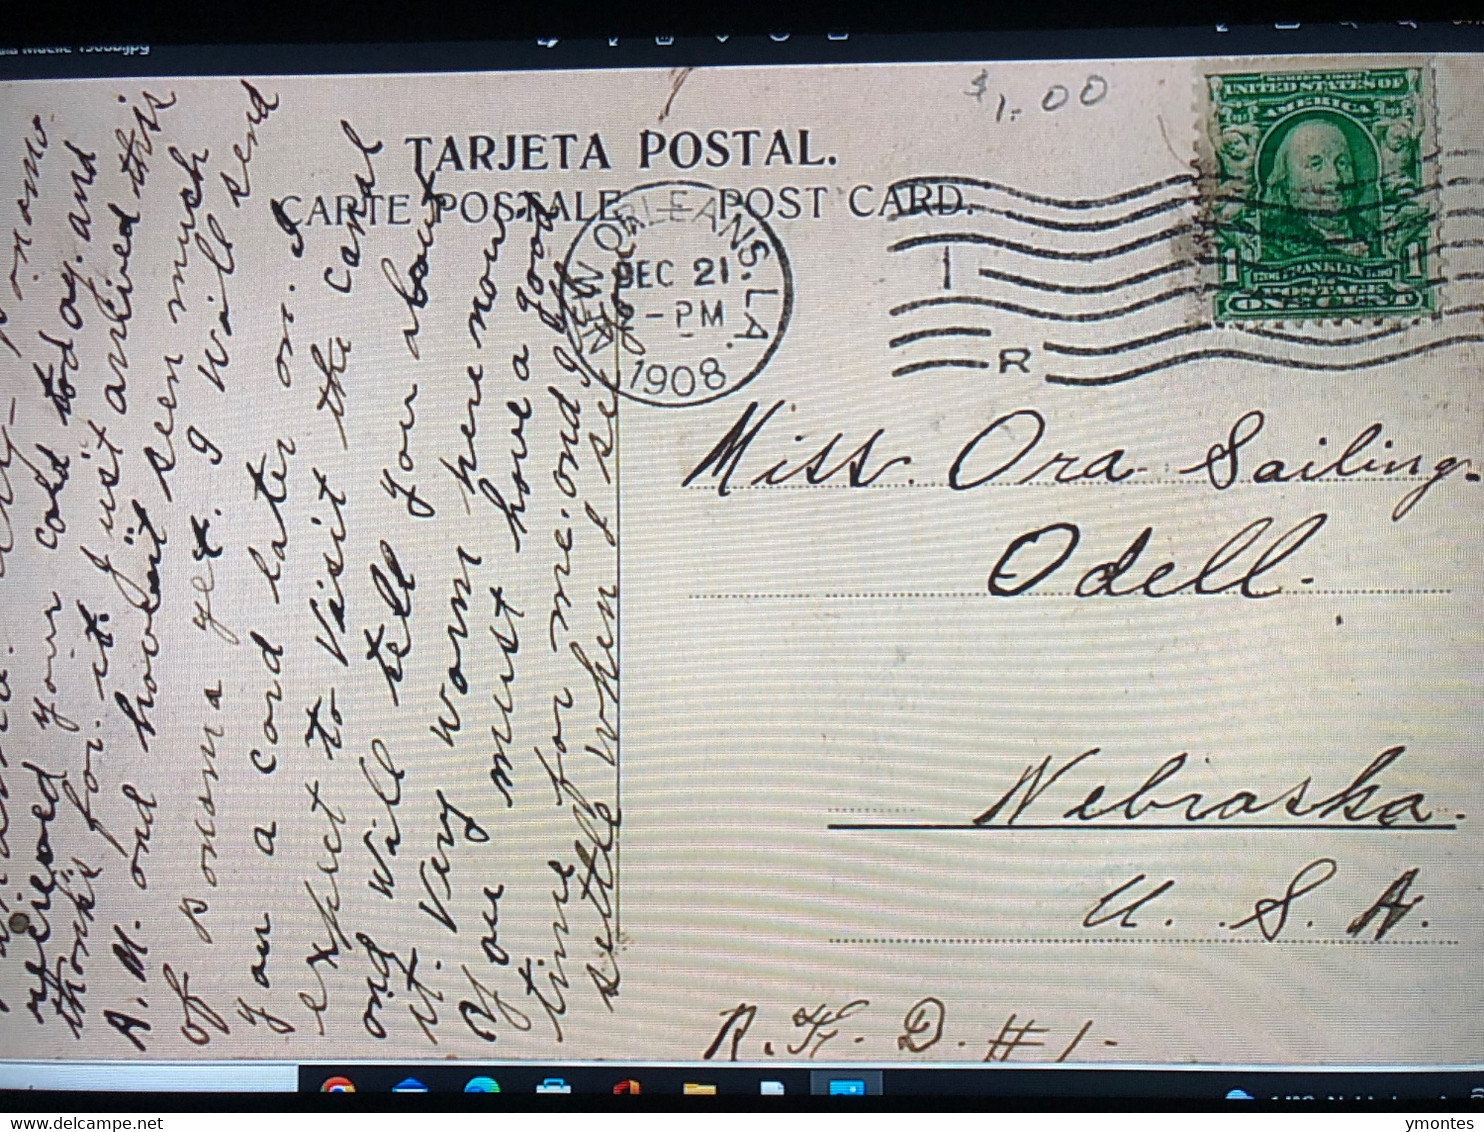 $1.00
TARJETA POSTAL.
CARTE POSTALE — POST CARD.
NEW ORLEANS, LA.
DEC 21
2-PM
1908
1
R
SERIES 1902
UNITED STATES OF
AMERICA
1 FRANKLIN 1
POSTAGE
ONE CENT
Miss. Ora Sailing.
Odell.
Nebraska.
U. S. A.
R. F. D. #1.
received your card today. and
thanks for it. I just arrived this
A.M. and havent seen much
of Panama yet. I will send
you a card later on. I
expect to visit the canal
and will tell you about
it. Very warm here now
you must have a good
time for me. and I'll
settle when I see you
ymontes
delcampe.net